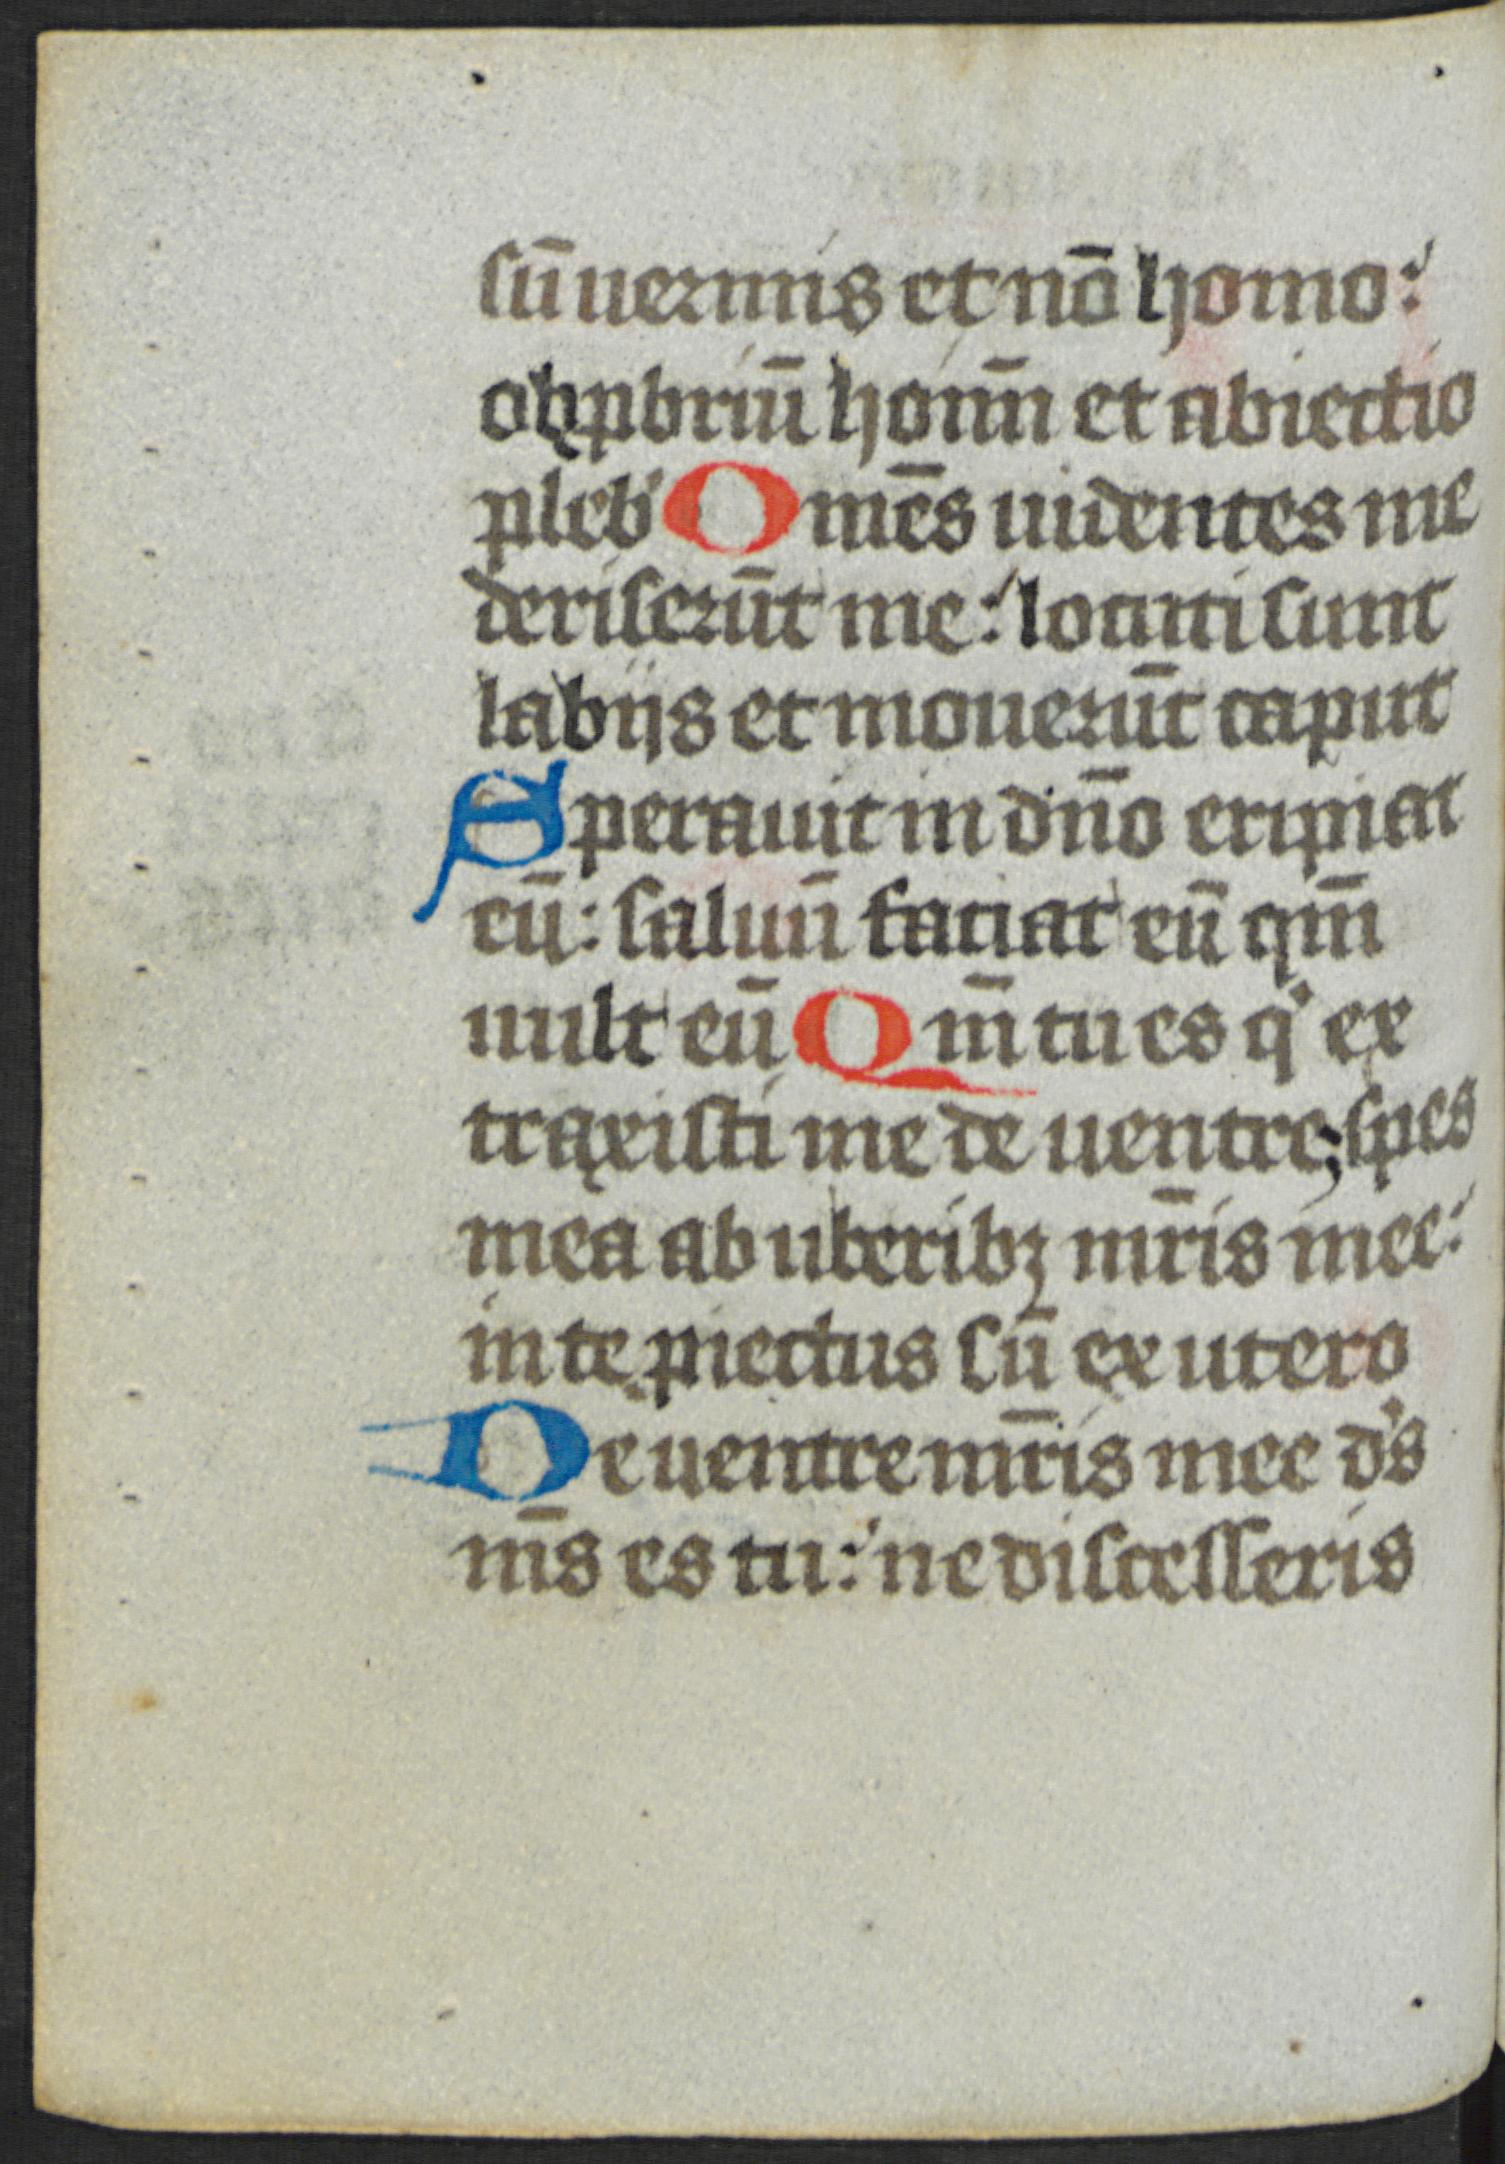 sū uermis et nō homo:
obꝓbriū homī et abiectio
pleb' Om̄es uidentes me
deriserūt me: locuti sunt
labijs et mouerūt caput
Sperauit in dn̄o eripiat
eū: saluū faciat eū qm̄
uult eū Qm̄ tu es qͥ ex
traxisti me de uentre; spes
mea ab uberibꝫ mr̄is mee:
in te ꝓiectus sū ex utero
De uentre mr̄is mee ds̓
ms̄ es tu: ne discesseris